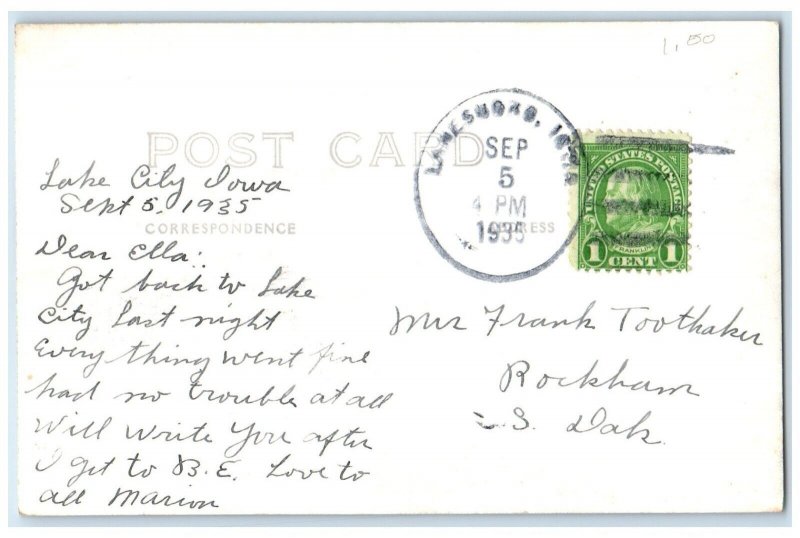 1.50
POST CARD
LANESBORO, IOWA
SEP
5
4 PM
1935
UNITED STATES POSTAGE
FRANKLIN
1 CENT 1
CORRESPONDENCE
ADDRESS
Lake City Iowa
Sept 5, 1935
Dear Ella:
Got back to Lake
City Last night
Every thing went fine
had no trouble at all
Will write You after
I get to B.E. Love to
all Marion
Mrs Frank Toothaker
Rockham
S. Dak.